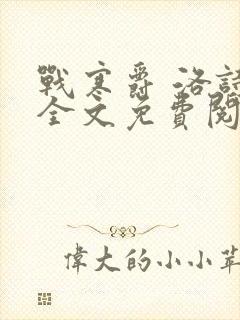 戰寒爵 洛詩
全文免費閱
偉大的小小草